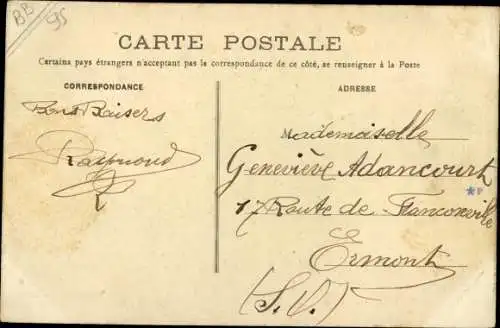 BB
95
CARTE POSTALE
Certains pays étrangers n'acceptant pas la correspondance de ce côté, se renseigner à la Poste
CORRESPONDANCE
Bons Baisers
Raymond
ADRESSE
Mademoiselle
Geneviève Adancourt
17 Route de Franconville
Ermont
(S. O.)